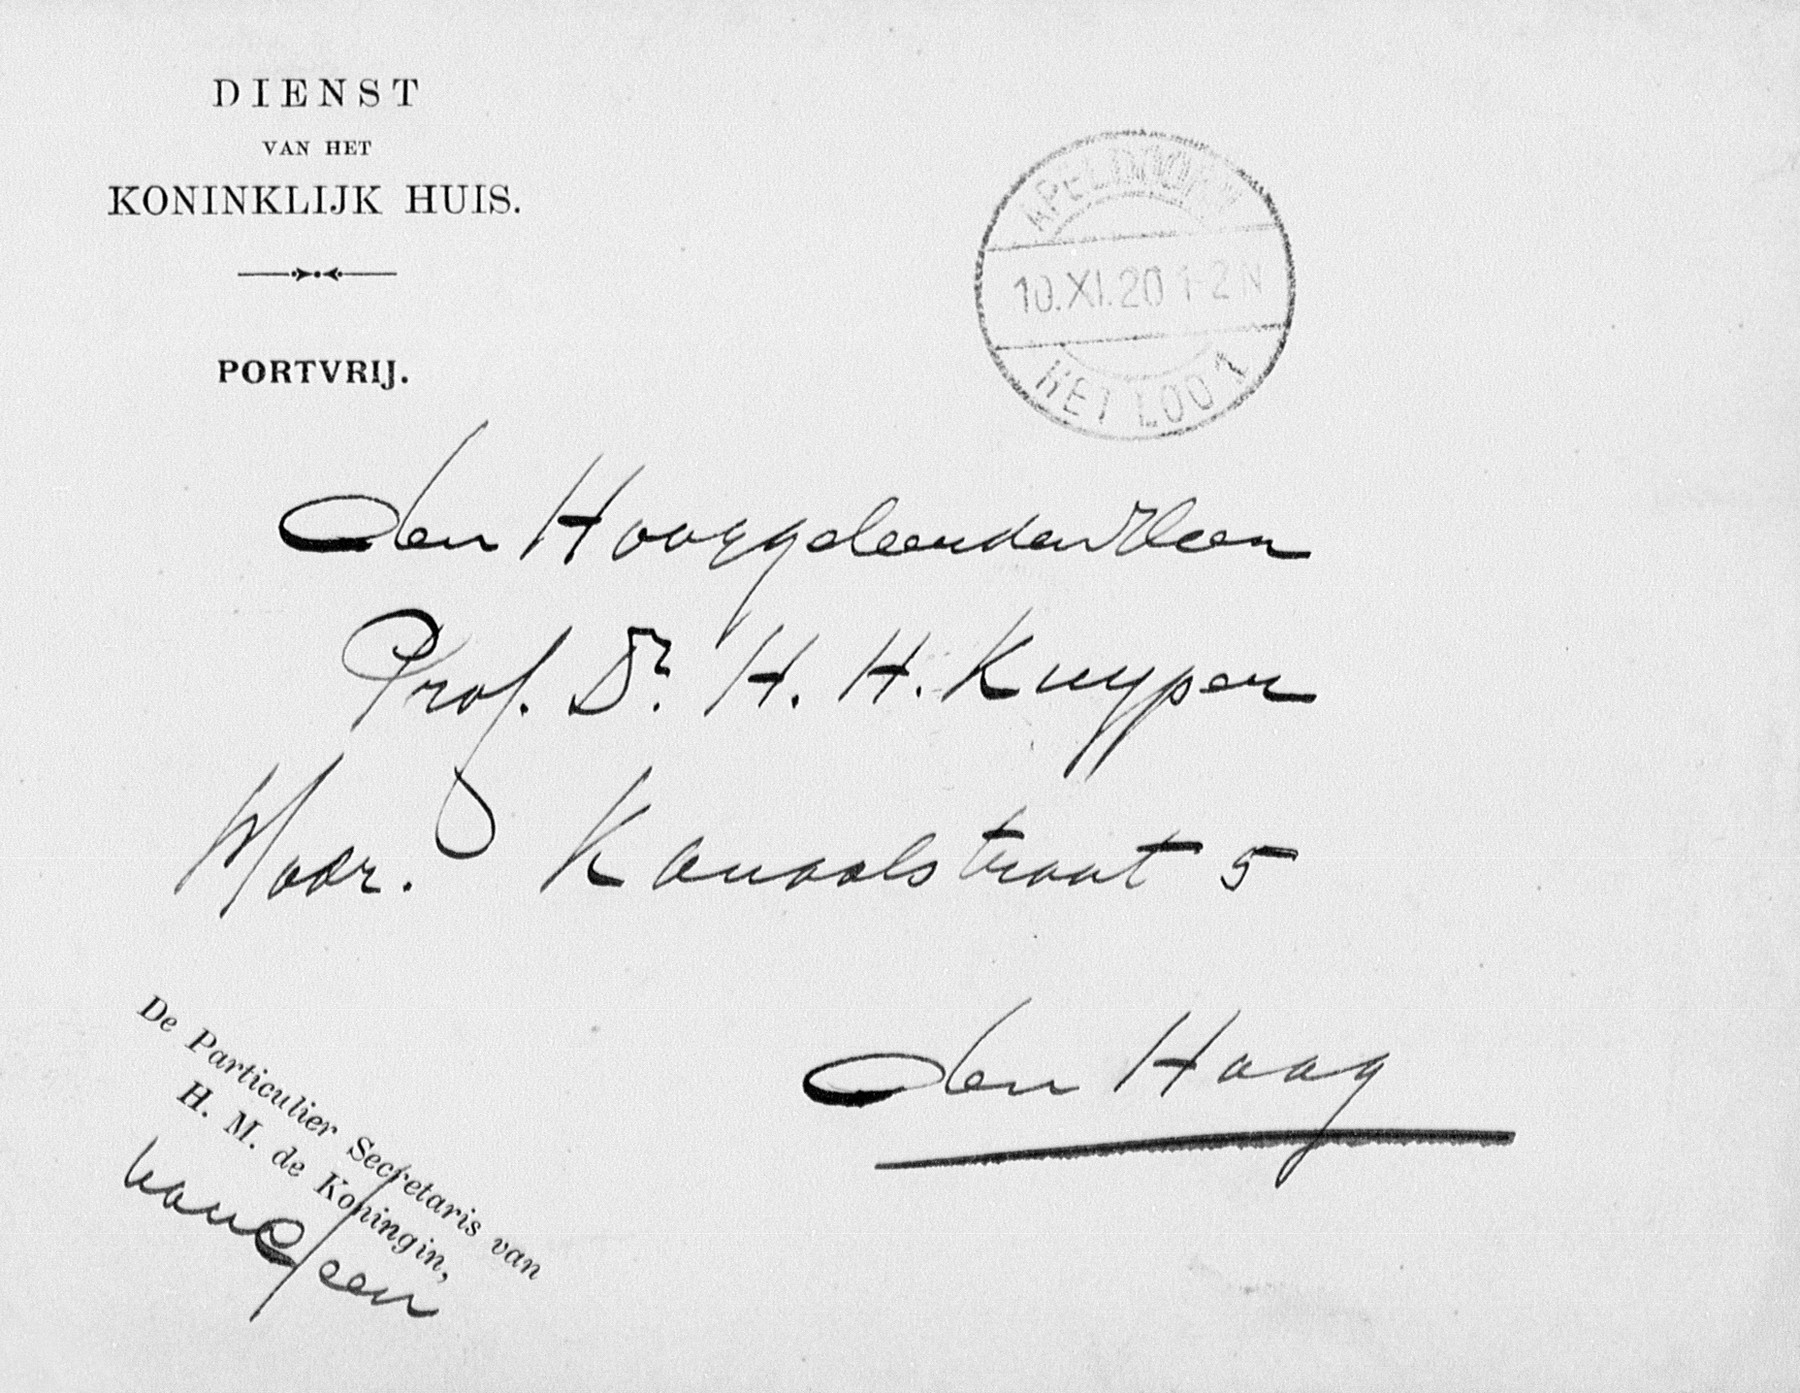 DIENST
VAN HET
KONINKLIJK HUIS.
PORTVRIJ.
APELDOORN
10.XI.20 1-2N
HET LOO 1
den Hooggeleerden Heer
Prof. Dr. H. H. Kuyper
Kanaalstraat 5
den Haag
De Particulier Secretaris van
H. M. de Koningin,
van Geen